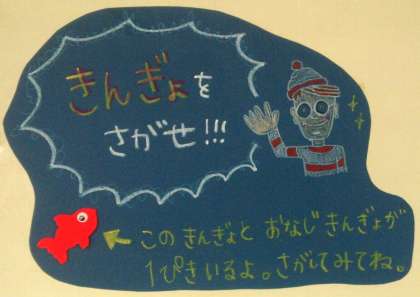 きんぎょを
さがせ!!!
このきんぎょと おなじきんぎょが
1ぴきいるよ。さがしてみてね。